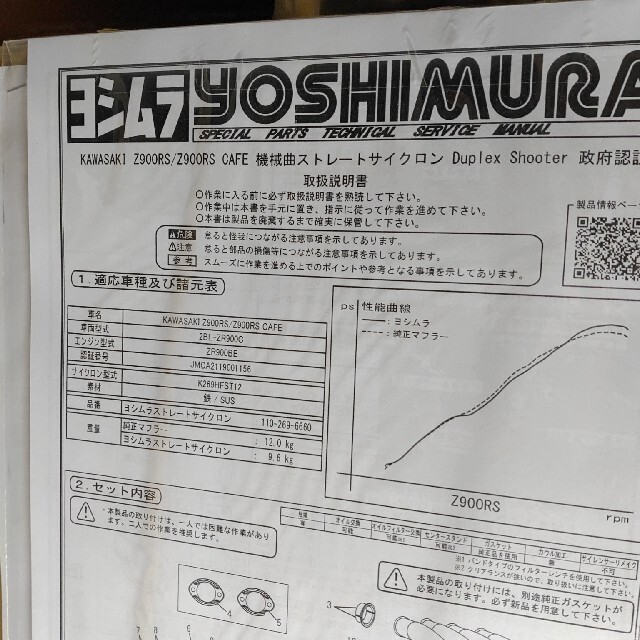 ヨシムラ YOSHIMURA
SPECIAL PARTS TECHNICAL SERVICE MANUAL
KAWASAKI Z900RS/Z900RS CAFE 機械曲ストレートサイクロン Duplex Shooter 政府認証
取扱説明書
○作業に入る前に必ず取扱説明書を熟読して下さい。
○作業中は本書を手元に置き、指示に従って作業を進めて下さい。
○本書は製品を廃棄するまで確実に保管して下さい。
製品情報ページ
⚠危険 怠ると怪我につながる注意事項を示してあります。
⚠注意 怠ると部品の損傷等につながる注意事項を示してあります。
参考 スムーズに作業を進める上でのポイントや参考となる事項を示してあります。
1. 適応車種及び諸元表
車名 KAWASAKI Z900RS/Z900RS CAFE
車両型式 2BL-ZR900C
エンジン型式 ZR900BE
認証番号 JMCA2119001156
サイクロン型式 K269HFST12
素材 鉄/SUS
品番 ヨシムラストレートサイクロン 110-269-6660
重量 純正マフラー : 12.0 kg
ヨシムラストレートサイクロン : 9.6 kg
ps 性能曲線
ヨシムラ
純正マフラー
Z900RS
rpm
2. セット内容
・本製品の取り付けは、一人では困難な作業があります。二人での作業を推奨します。
オイル交換 オイルフィルター交換 センタースタンド ガスケット カウル加工 サイレンサーリメイク
可能 可能※1 可能※2 純正品を使用 無 不可
※1 バンドタイプのフィルターレンチを使用して下さい。
※2 クリアランスが狭いので、取り扱いに注意して下さい。
本製品の取り付けには、別途純正ガスケットが
必要になります。必ず新品を用意して下さい。
4
5
3
7
8
9
6